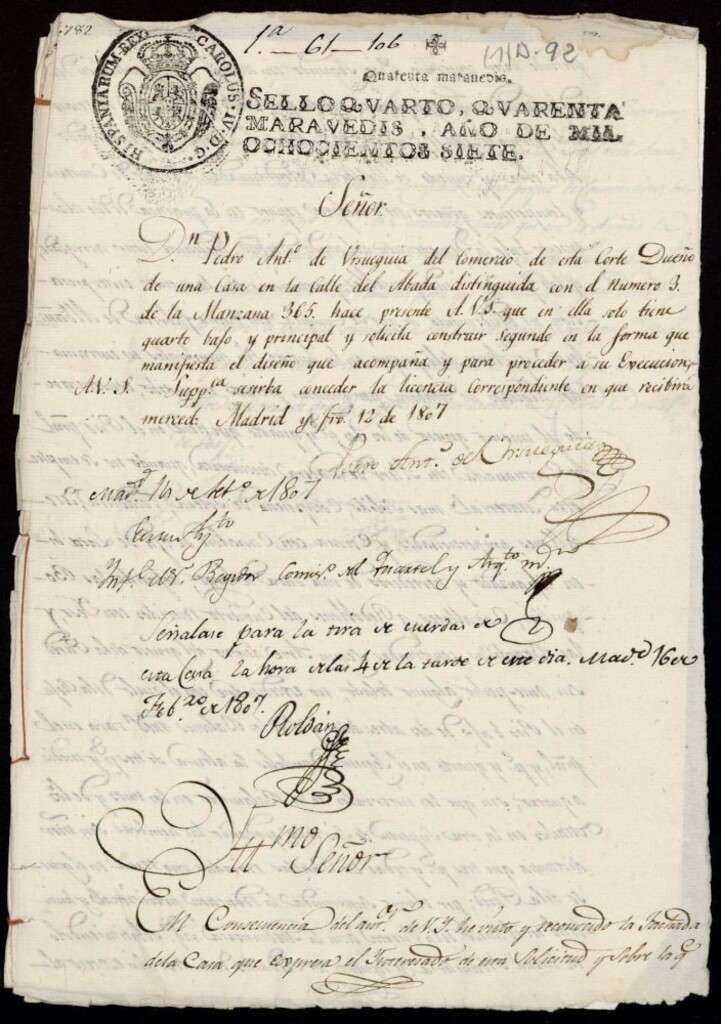 1782
1.ª - 61 - 106
(1) A. 92
HISPANIARUM REX CAROLUS IV D. G.
Quarenta maravedis.
SELLO QVARTO, QVARENTA
MARAVEDIS, AÑO DE MIL
OCHOCIENTOS SIETE.
Señor.
Dn. Pedro Ant.º de Vrueguia del Comercio de esta Corte Dueño
de una Casa en la Calle del Abada distinguida con el Numero 3.
de la Manzana 365. hace presente A.V.S. que en ella solo tiene
quarto bajo, y principal y solicita construir segundo en la forma que
manifiesta el diseño que acompaña y para proceder á su Execucion,
A.V.S. Supp.ca se sirba conceder la licencia Correspondiente en que recibirá
merced. Madrid y Fro. 12 de 1807
Pedro Ant.º de
Mad.d 14 de feb.º de 1807
Ayto
Inf.e el Sr. Regidor Comis.º del Quartel y Arq.to m.or
Señalase para la tira de cuerdas de
esta Casa la hora de las 4 de la tarde de este dia. Mad.d 16 de
Feb.ro de 1807.
Roldán
Illmo Señor
En Consecuencia del de V.I. he visto y reconocido la Fachada
de la Casa que expresa el Interesado de esta Solicitud y sobre la q.e